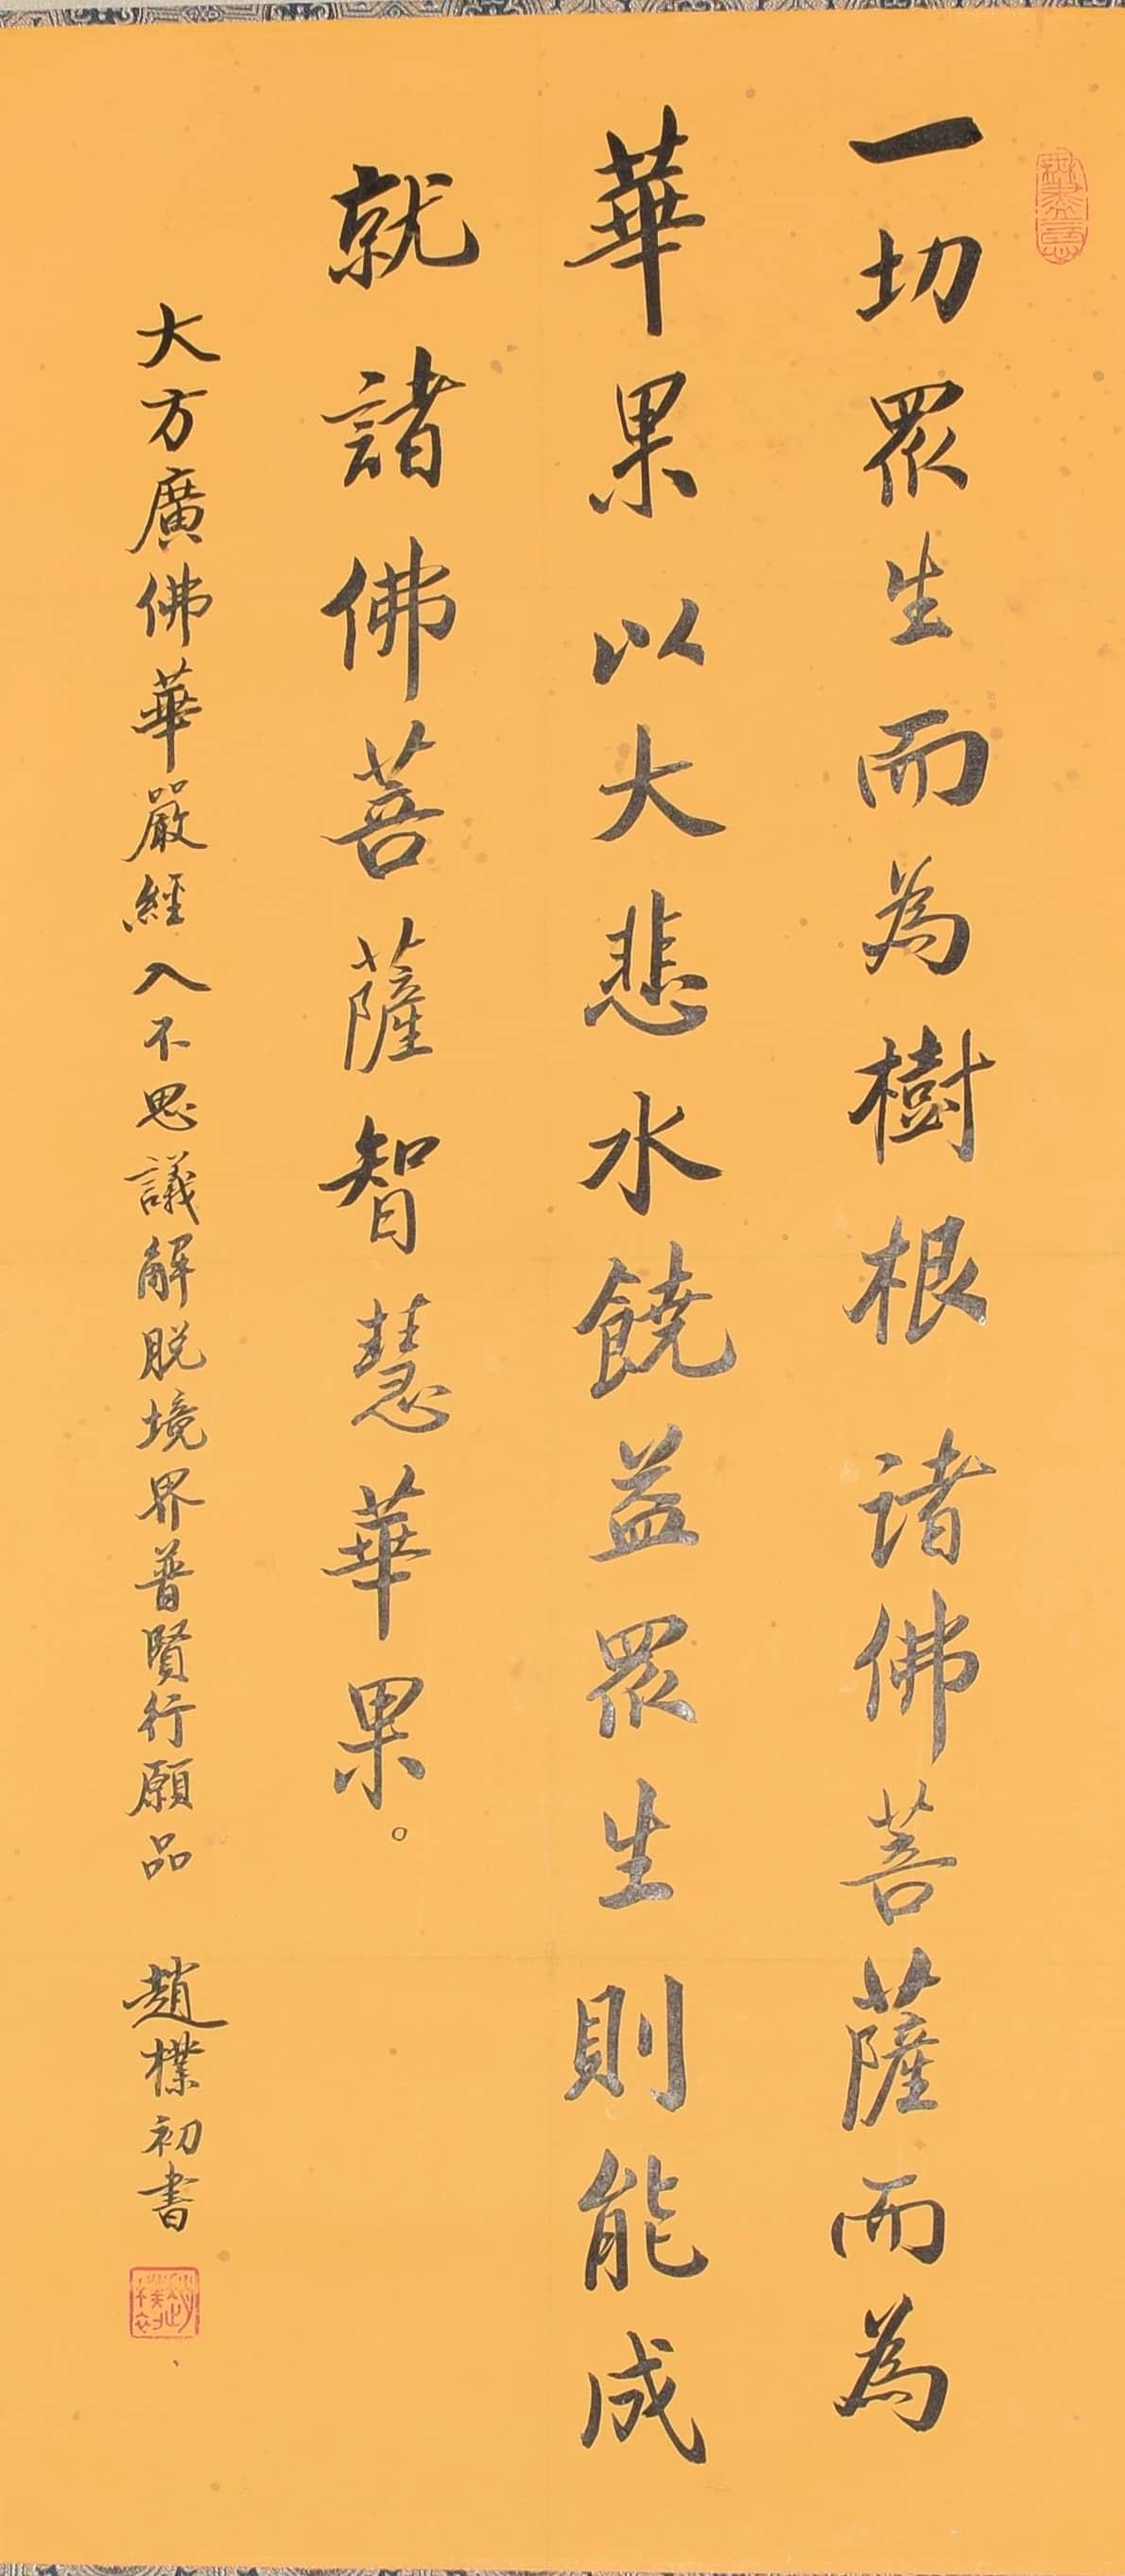 一切眾生而為樹根諸佛菩薩而為
華果以大悲水饒益眾生則能成
就諸佛菩薩智慧華果。
大方廣佛華嚴經入不思議解脫境界普賢行願品 趙樸初書
無盡意
趙樸初